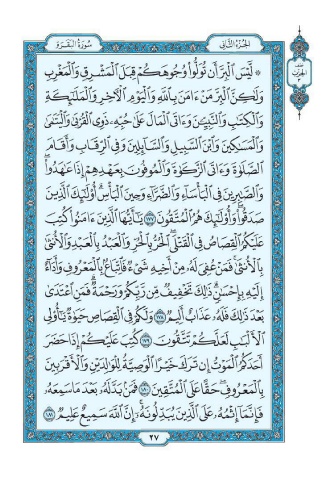 سُورَةُ البَقَرَةِ
الجُزْءُ الثَّانِي
۞ لَّيْسَ الْبِرَّ أَن تُوَلُّوا وُجُوهَكُمْ قِبَلَ الْمَشْرِقِ وَالْمَغْرِبِ
وَلَٰكِنَّ الْبِرَّ مَنْ ءَامَنَ بِاللَّهِ وَالْيَوْمِ الْءَاخِرِ وَالْمَلَٰٓئِكَةِ
وَالْكِتَٰبِ وَالنَّبِيِّۦنَ وَءَاتَى الْمَالَ عَلَىٰ حُبِّهِۦ ذَوِى الْقُرْبَىٰ وَالْيَتَٰمَىٰ
وَالْمَسَٰكِينَ وَابْنَ السَّبِيلِ وَالسَّآئِلِينَ وَفِى الرِّقَابِ وَأَقَامَ
الصَّلَوٰةَ وَءَاتَى الزَّكَوٰةَ وَالْمُوفُونَ بِعَهْدِهِمْ إِذَا عَٰهَدُوا
وَالصَّٰبِرِينَ فِى الْبَأْسَآءِ وَالضَّرَّآءِ وَحِينَ الْبَأْسِ أُولَٰٓئِكَ الَّذِينَ
صَدَقُوا وَأُولَٰٓئِكَ هُمُ الْمُتَّقُونَ ١٧٧ يَٰٓأَيُّهَا الَّذِينَ ءَامَنُوا كُتِبَ
عَلَيْكُمُ الْقِصَاصُ فِى الْقَتْلَى الْحُرُّ بِالْحُرِّ وَالْعَبْدُ بِالْعَبْدِ وَالْأُنثَىٰ
بِالْأُنثَىٰ فَمَنْ عُفِىَ لَهُۥ مِنْ أَخِيهِ شَىْءٌ فَاتِّبَاعٌۢ بِالْمَعْرُوفِ وَأَدَآءٌ
إِلَيْهِ بِإِحْسَٰنٍ ذَٰلِكَ تَخْفِيفٌ مِّن رَّبِّكُمْ وَرَحْمَةٌ فَمَنِ اعْتَدَىٰ
بَعْدَ ذَٰلِكَ فَلَهُۥ عَذَابٌ أَلِيمٌ ١٧٨ وَلَكُمْ فِى الْقِصَاصِ حَيَوٰةٌ يَٰٓأُولِى
الْأَلْبَٰبِ لَعَلَّكُمْ تَتَّقُونَ ١٧٩ كُتِبَ عَلَيْكُمْ إِذَا حَضَرَ
أَحَدَكُمُ الْمَوْتُ إِن تَرَكَ خَيْرًا الْوَصِيَّةُ لِلْوَٰلِدَيْنِ وَالْأَقْرَبِينَ
بِالْمَعْرُوفِ حَقًّا عَلَى الْمُتَّقِينَ ١٨٠ فَمَنۢ بَدَّلَهُۥ بَعْدَ مَا سَمِعَهُۥ
فَإِنَّمَآ إِثْمُهُۥ عَلَى الَّذِينَ يُبَدِّلُونَهُۥٓ إِنَّ اللَّهَ سَمِيعٌ عَلِيمٌ ١٨١
٢٧